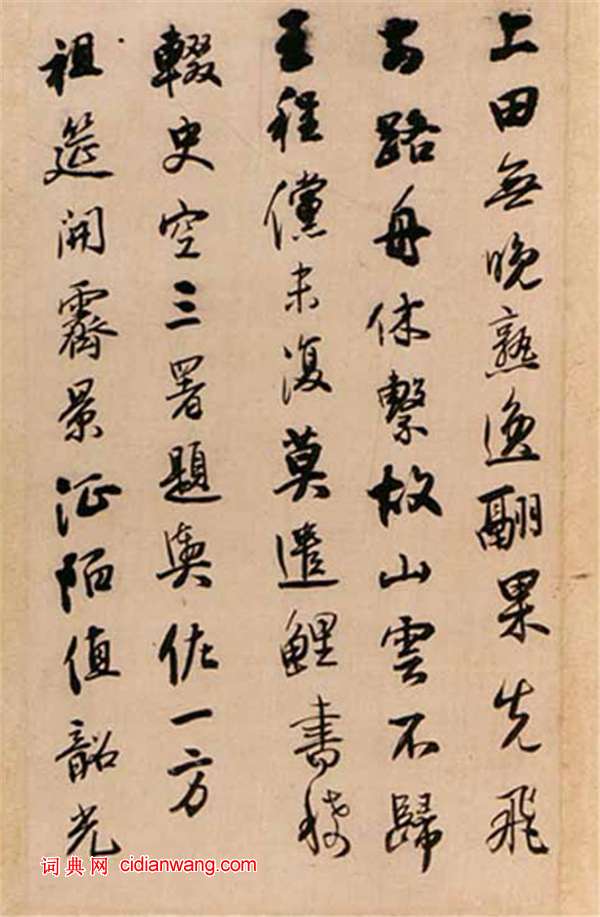 上田無晚熟逸翮果先飛
路舟休繫故山雲不歸
王程儻未復莫遣鯉書稀
輟史空三署題輿佐一方
祖筵開霽景征陌值韶光
词典网 cidianwang.com